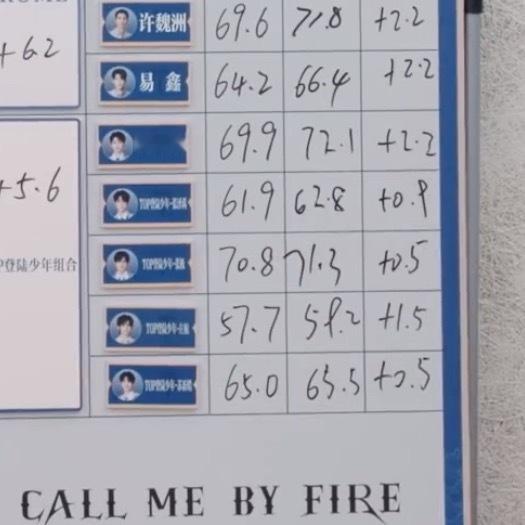 许魏洲 69.6 71.8 +2.2
+6.2
易鑫 64.2 66.4 +2.2
69.9 72.1 +2.2
+5.6
TOP登陆少年 61.9 62.8 +0.9
P登陆少年组合
TOP登陆少年 70.8 71.3 +0.5
TOP登陆少年 57.7 59.2 +1.5
TOP登陆少年 65.0 65.5 +0.5
CALL ME BY FIRE